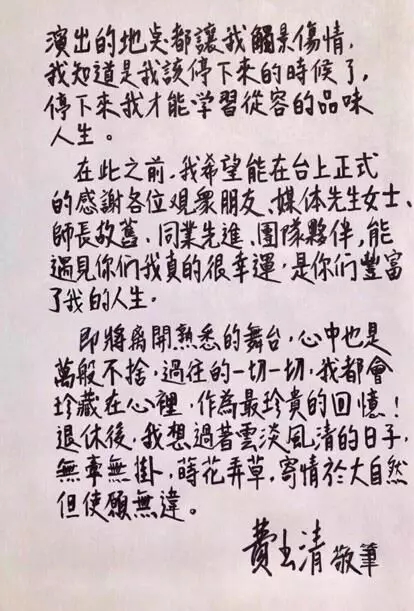 演出的地點都讓我觸景傷情,
我知道是我該停下來的時候了,
停下來我才能学習從容的品味
人生。
在此之前,我希望能在台上正式
的感謝各位观衆朋友、媒体先生女士、
師長故舊、同業先進、團隊夥伴,能
遇見你们我真的很幸運,是你们豐富
了我的人生。
即將离開熟悉的舞台,心中也是
萬般不捨,過往的一切一切,我都會
珍藏在心裡,作為最珍貴的回憶!
退休後,我想過著雲淡風清的日子,
無牽無掛,蒔花弄草,寄情於大自然
但使願無違。
費玉清 敬筆